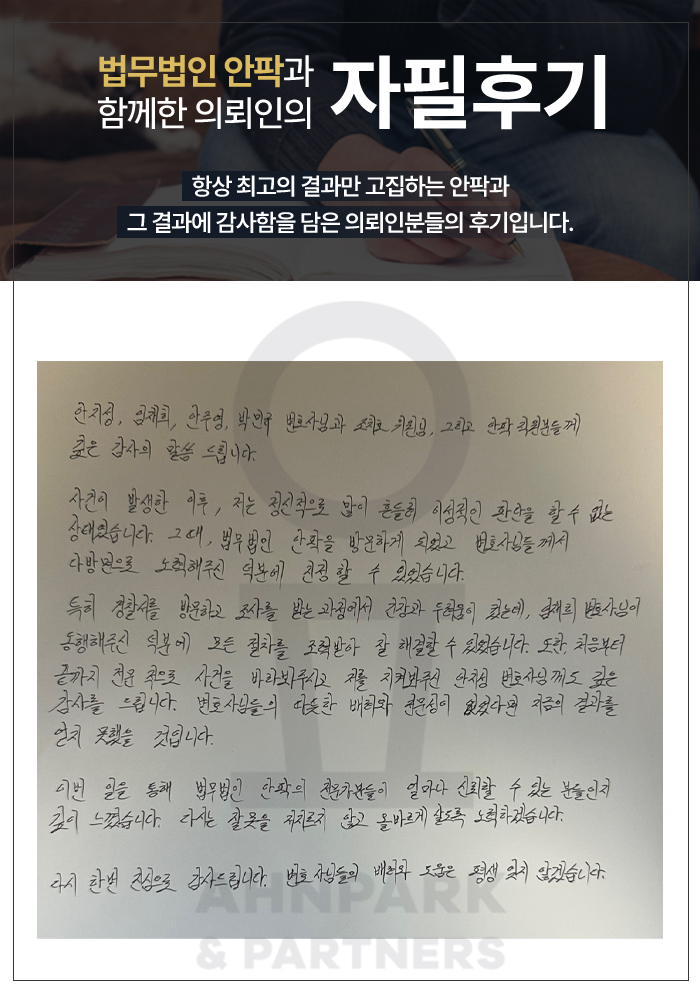 법무법인 안팍과
함께한 의뢰인의
자필후기
항상 최고의 결과만 고집하는 안팍과
그 결과에 감사함을 담은 의뢰인분들의 후기입니다.
안지성, 임재희, 안주영, 박민규 변호사님과 위원님, 그리고 안팍 직원분들께
깊은 감사의 말씀 드립니다.
사건이 발생한 이후, 저는 정신적으로 많이 흔들려 이성적인 판단을 할 수 없는
상태였습니다. 그때, 법무법인 안팍을 방문하게 되었고 변호사님들께서
다방면으로 노력해주신 덕분에 진정 할 수 있었습니다.
특히 경찰서를 방문하고 조사를 받는 과정에서 긴장과 두려움이 컸는데, 임재희 변호사님이
동행해주신 덕분에 모든 절차를 조력받아 잘 해결할 수 있었습니다. 또한, 처음부터
끝까지 전문 적으로 사건을 바라봐주시고 저를 지켜봐주신 안지성 변호사님께도 깊은
감사를 드립니다. 변호사님들의 따뜻한 배려와 전문성이 없었다면 지금의 결과를
얻지 못했을 것입니다.
이번 일을 통해 법무법인 안팍의 전문가분들이 얼마나 신뢰할 수 있는 분들인지
깊이 느꼈습니다. 다시는 잘못을 저지르지 않고 올바르게 살도록 노력하겠습니다.
다시 한번 진심으로 감사드립니다. 변호사님들의 배려와 도움은 평생 잊지 않겠습니다.
AHNPARK
& PARTNERS